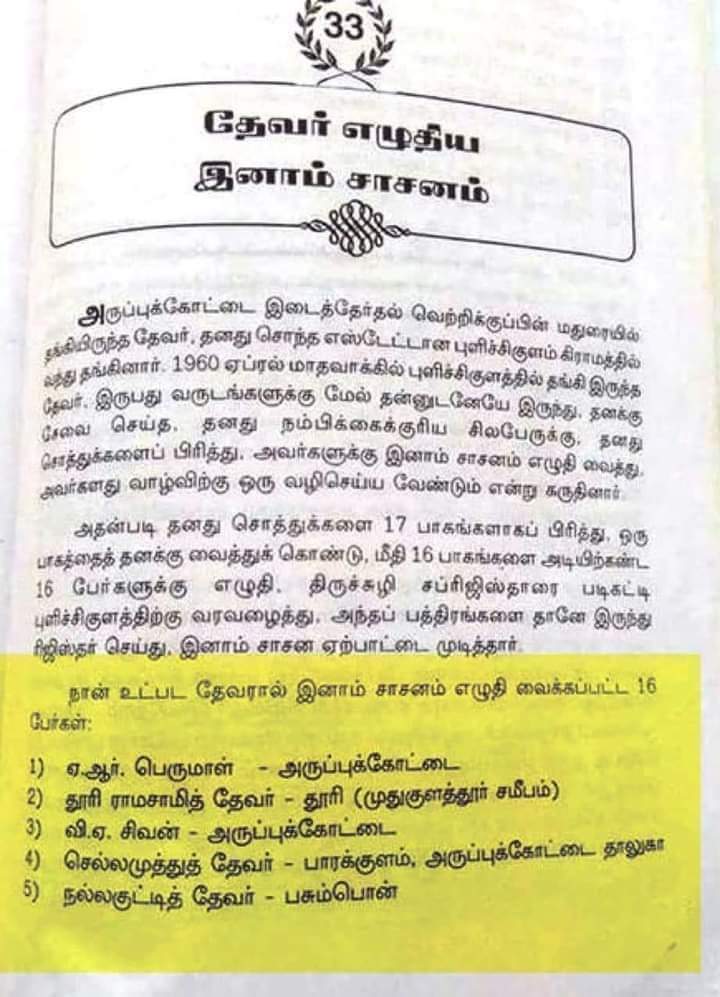 33
தேவர் எழுதிய
இனாம் சாசனம்
அருப்புக்கோட்டை இடைத்தேர்தல் வெற்றிக்குப்பின் மதுரையில்
தங்கியிருந்த தேவர், தனது சொந்த எஸ்டேட்டான புளிச்சிகுளம் கிராமத்தில்
வந்து தங்கினார். 1960 ஏப்ரல் மாதவாக்கில் புளிச்சிகுளத்தில் தங்கி இருந்த
தேவர், இருபது வருடங்களுக்கு மேல் தன்னுடனேயே இருந்து, தனக்கு
சேவை செய்த, தனது நம்பிக்கைக்குரிய சிலபேருக்கு, தனது
சொத்துக்களைப் பிரித்து, அவர்களுக்கு இனாம் சாசனம் எழுதி வைத்து,
அவர்களது வாழ்விற்கு ஒரு வழிசெய்ய வேண்டும் என்று கருதினார்.
அதன்படி தனது சொத்துக்களை 17 பாகங்களாகப் பிரித்து, ஒரு
பாகத்தைத் தனக்கு வைத்துக் கொண்டு, மீதி 16 பாகங்களை அடியிற்கண்ட
16 பேர்களுக்கு எழுதி, திருச்சுழி சப்ரிஜிஸ்தாரை படிகட்டி
புளிச்சிகுளத்திற்கு வரவழைத்து, அந்தப் பத்திரங்களை தானே இருந்து
ரிஜிஸ்தர் செய்து, இனாம் சாசன ஏற்பாட்டை முடித்தார்.
நான் உட்பட தேவரால் இனாம் சாசனம் எழுதி வைக்கப்பட்ட 16
பேர்கள்:
1) ஏ.ஆர். பெருமாள் - அருப்புக்கோட்டை
2) தூரி ராமசாமித் தேவர் - தூரி (முதுகுளத்தூர் சமீபம்)
3) வி.ஏ. சிவன் - அருப்புக்கோட்டை
4) செல்லமுத்துத் தேவர் - பாரக்குளம், அருப்புக்கோட்டை தாலுகா
5) நல்லகுட்டித் தேவர் - பசும்பொன்